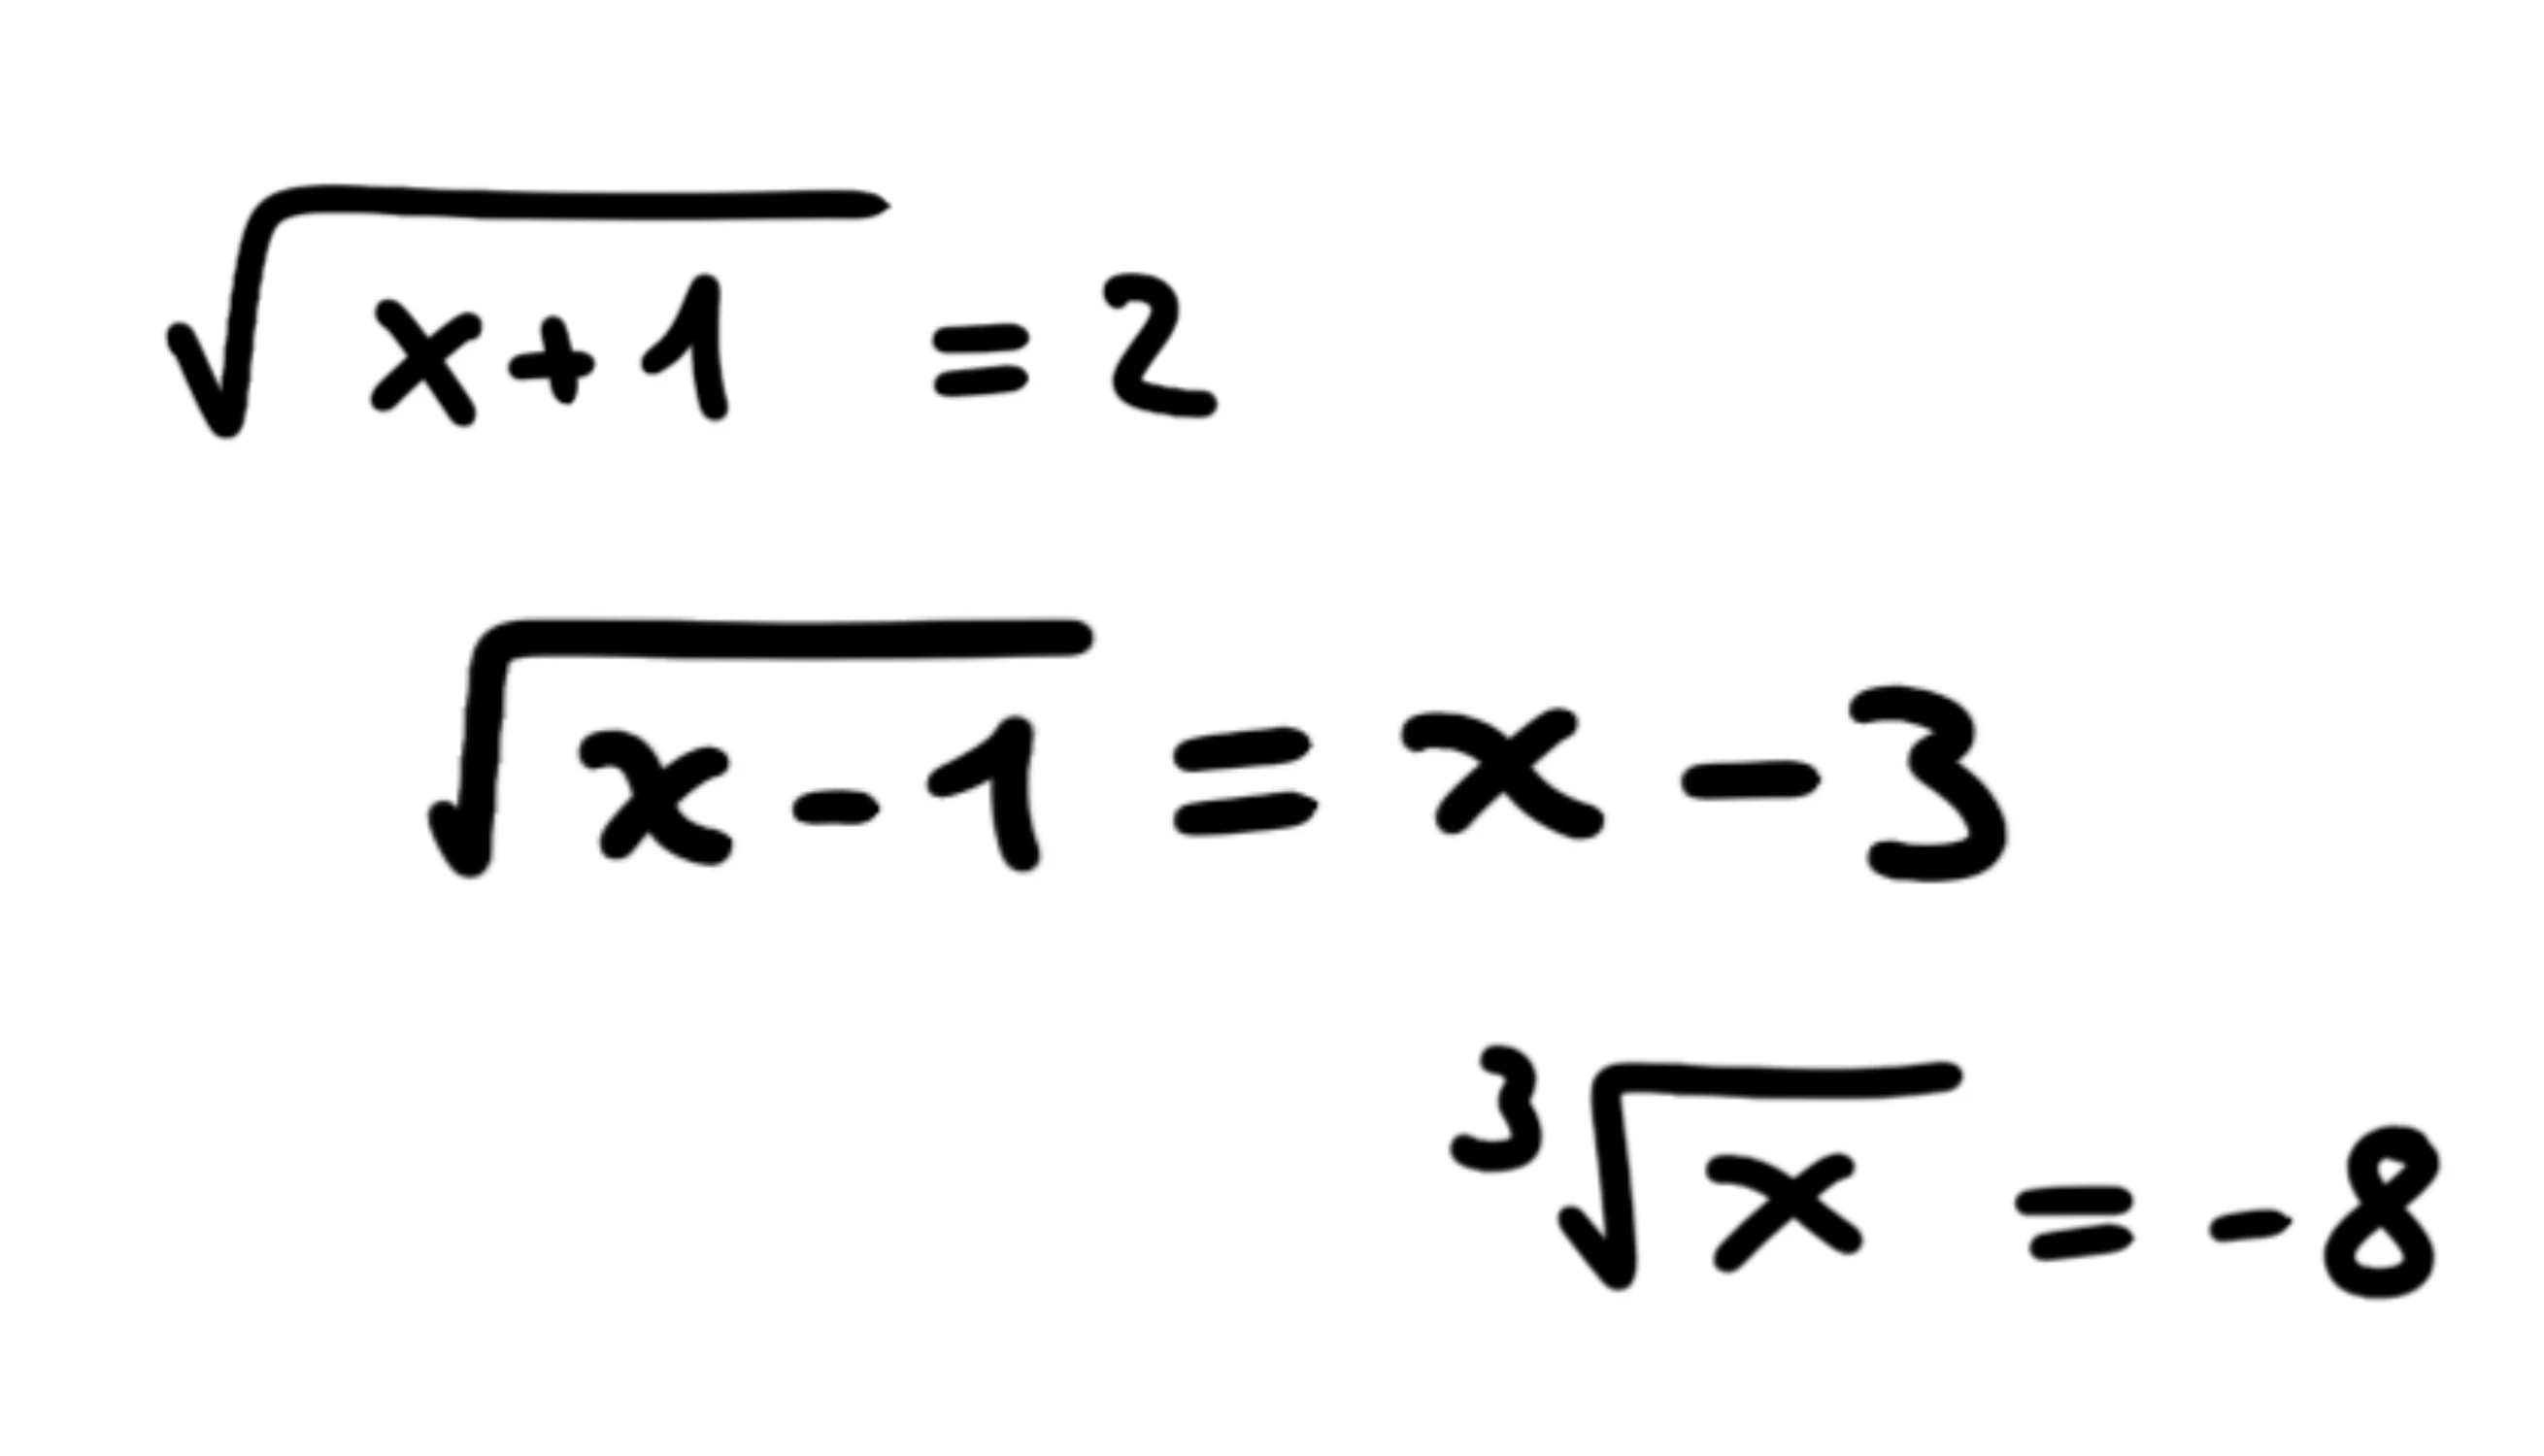 √(x+1) = 2
√(x-1) = x-3
³√x = -8